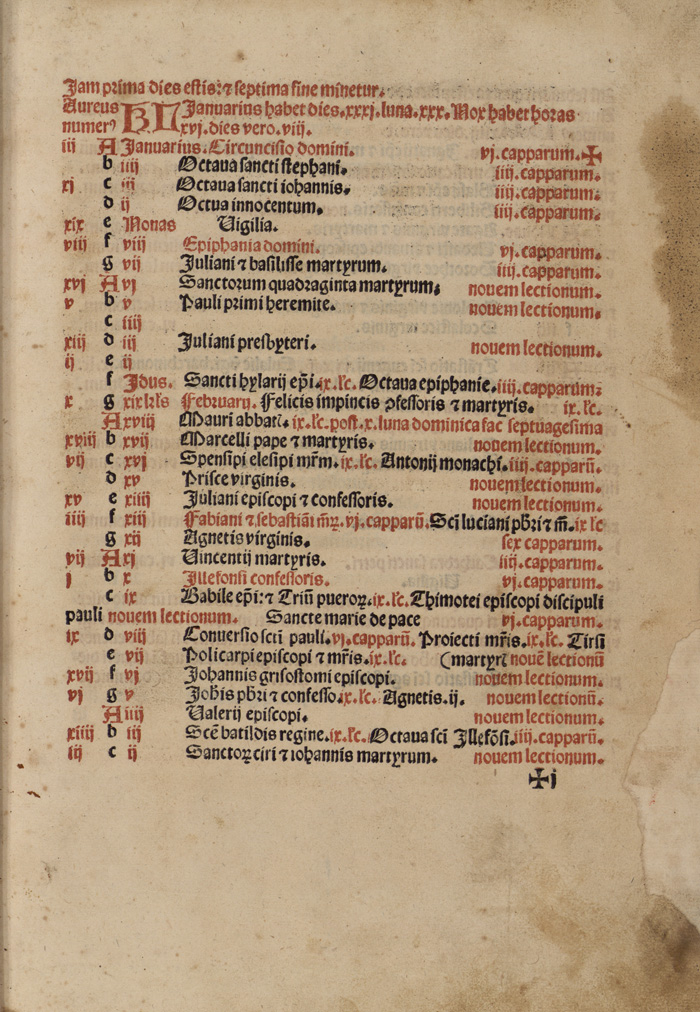 Jam prima dies estis: ⁊ septima fine minetur.
Aureus KL Januarius habet dies .xxxj. luna .xxx. Nox habet horas
numerꝰ xvj. dies vero .viij.
iij A Januarius. Circuncisio domini. vj. capparum. ✠
b iiij Octaua sancti stephani. iiij. capparum.
xj c iij Octaua sancti iohannis. iiij. capparum.
d ij Octua innocentum. iiij. capparum.
xix e Nonas Uigilia.
viij f viij Epiphania domini. vj. capparum.
g vij Juliani ⁊ basilisse martyrum. iiij. capparum.
xvj A vj Sanctorum quadraginta martyrum. nouem lectionum.
v b v Pauli primi heremite. nouem lectionum.
c iiij
xiij d iij Juliani presbyteri. nouem lectionum.
ij e ij
f Idus. Sancti hylarij ep̄i. ix. lc̄. Octaua epiphanie. iiij. capparum:
x g xix kl̄s February. Felicis impincis ꝯfessoris ⁊ martyris. ix. lc̄.
A xviij Mauri abbati. ix. lc̄. post .x. luna dominica fac septuagesima
xviij b xvij Marcelli pape ⁊ martyris. nouem lectionum.
vij c xvj Spensipi elesipi mr̄m. ix. lc̄. Antonij monachi. iiij. capparū.
d xv Prisce virginis. nouem lectionum.
xv e xiiij Juliani episcopi ⁊ confessoris. nouem lectionum.
iiij f xiij Fabiani ⁊ sebastiāi m̄rꝝ. vj. capparū. Sc̄i luciani pb̄ri ⁊ m̄. ix lc
g xij Agnetis virginis. sex capparum.
vij A xj Uincentij martyris. iiij. capparum.
j b x Illefonsi confessoris. vj. capparum.
c ix Babile ep̄i: ⁊ Triū pueroꝝ. ix. lc̄. Thimotei episcopi discipuli
pauli nouem lectionum. Sancte marie de pace vj. capparum.
ix d viij Conuersio scti pauli. vj. capparū. Proiecti mr̄is. ix. lc̄. Tirsi
e vij Policarpi episcopi ⁊ mr̄is. ix. lc̄. (martyrꝭ nouē lectionū
xvij f vj Johannis grisostomi episcopi. nouem lectionum.
vj g v Joh̄is pb̄ri ⁊ confesso. ix. lc̄. Agnetis .ij. nouem lectionū.
A iiij Ualerij episcopi. nouem lectionum.
xiiij b iij Scē batildis regine. ix. lc̄. Octaua sc̄i Illefōsi. iiij. capparū.
iij c ij Sanctoꝝ ciri ⁊ iohannis martyrum. nouem lectionum.
✠ j